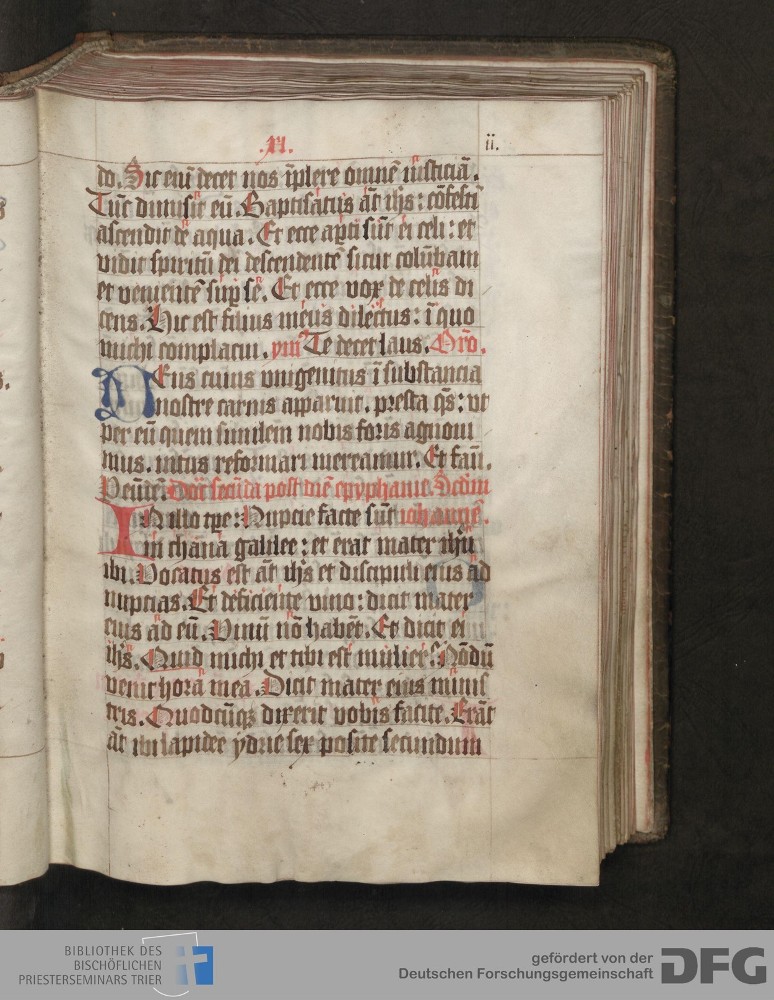 .XI. ii.
do. Sic eni᷑ decet nos īplere omnē iusticiā.
Tūc dimisit eū. Baptisatus āt ihs : cōfesti᷑
ascendit de aqua. Et ecce apti sūt ei celi : et
vidit spiritū dei descendentē sicut colūbam
et venientē sup se. Et ecce vox de celis di
cens. Hic est filius meus dilectus : ī quo
michi complacui. ym̄ Te decet laus. Oro.
DEus cuius vnigenitus ī substancia
nostre carnis apparuit. presta qs : vt
per eū quem similem nobis foris agnoui
mus. intus reformari mereamur. Et
Dec secūda post diē epyphanie. Scdm
IN illo tpe : Nupcie facte sūt iohannē.
in chana galilee : et erat mater ihu
ibi. Vocatus est āt ihs et discipuli eius ad
nupcias. Et deficiente vino : dicit mater
eius ad eū. Vinū nō habēt. Et dicit ei
ihs. Quid michi et tibi est mulier. Nōdū
venit hora mea. Dicit mater eius minis
tris. Quodcūqꝫ dixerit vobis facite. Erāt
āt ibi lapidee ydrie sex posite secundum
BIBLIOTHEK DES
BISCHÖFLICHEN
PRIESTERSEMINARS TRIER
gefördert von der
Deutschen Forschungsgemeinschaft DFG